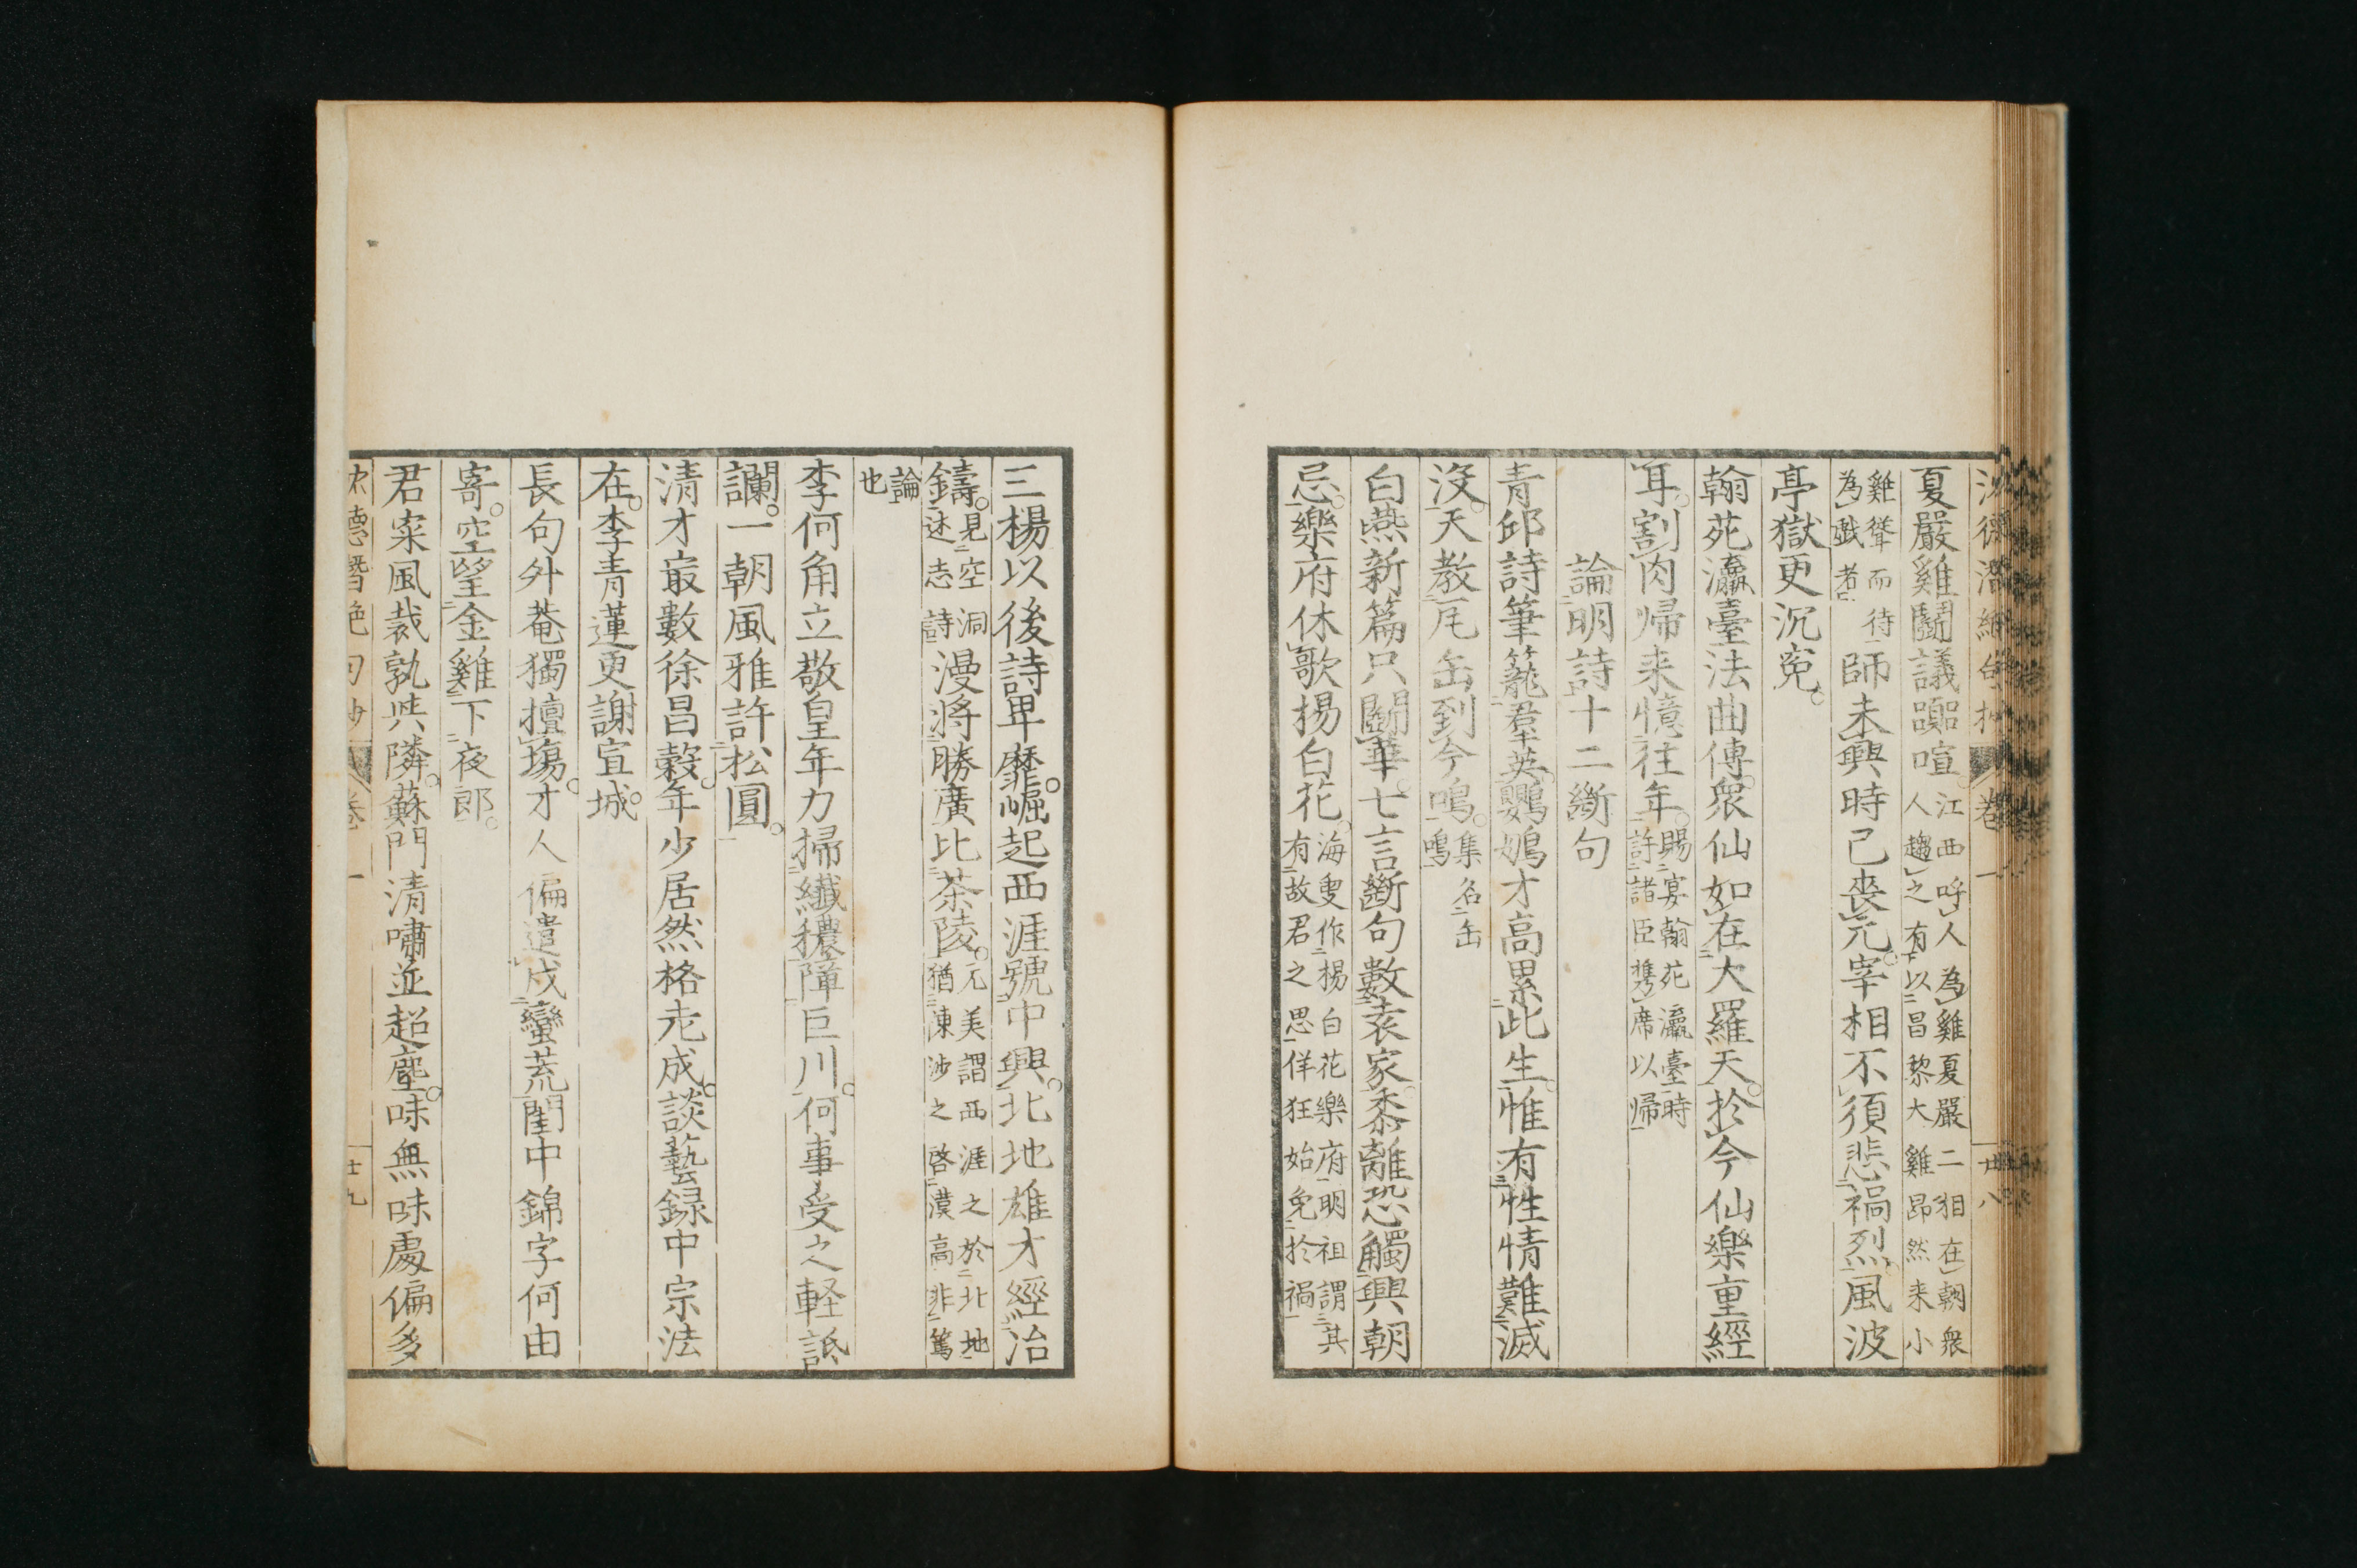 沈德潛絶句抄 卷一 廿八
夏嚴雞鬪議譟喧。江西呼人為雞夏嚴二相在朝衆人趨之有以昌黎大雞昂然来小
雞聳而待為戲者師未興時已喪元。宰相不須悲禍烈。風波
亭獄更沉寃。
翰苑瀛臺法曲傳。衆仙如在大羅天。於今仙樂重經
耳。割肉帰来憶往年。賜宴翰苑瀛臺時許諸臣携席以帰
論明詩十二斷句
青邱詩筆籠羣英。鸚鵡才高累此生。惟有性情難滅
沒。天教瓦缶到今鳴。集名缶鳴
白燕新篇只鬪華。七言斷句數袁家。黍離恐觸興朝
忌。樂府休歌楊白花。海叟作楊白花樂府明祖謂其有故君之思佯狂始免於禍
三楊以後詩卑靡。崛起西涯號中興。北地雄才經冶
鑄。見空洞述志詩漫將勝廣比茶陵。元美謂西涯之於北地猶陳涉之啓漢高非篤
論也
李何角立敬皇年力掃纖穠障巨川。何事受之軽詆
讕。一朝風雅許松圓。
清才最數徐昌穀。年少居然格老成。談藝録中宗法
在。李青蓮更謝宣城。
長句升菴獨擅塲。才人偏遣戍蠻荒。閨中錦字何由
寄。空望金雞下夜郎。
君寀風裁孰與隣。蘇門清嘯並超塵。味無味處偏多
沈德潛絶句抄 卷一 廿九